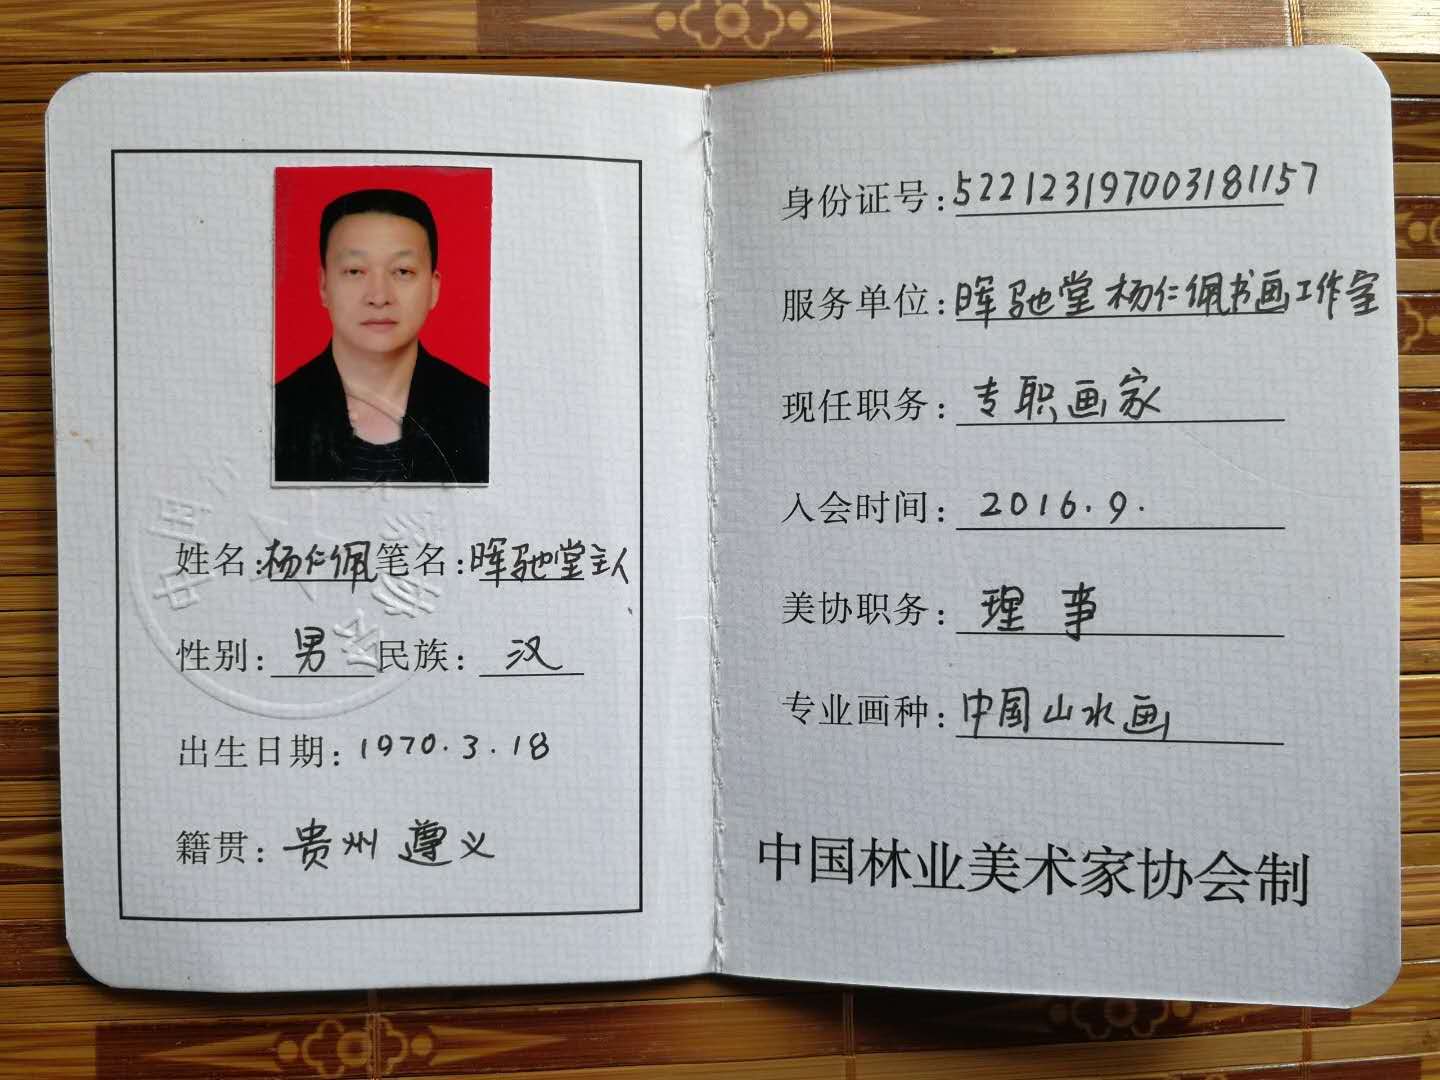 姓名:杨仁佩笔名:晖驰堂主人
性别:男 民族:汉
出生日期:1970.3.18
籍贯:贵州遵义
身份证号:522123197003181157
服务单位:晖驰堂杨仁佩书画工作室
现任职务:专职画家
入会时间:2016.9.
美协职务:理事
专业画种:中国山水画
中国林业美术家协会制